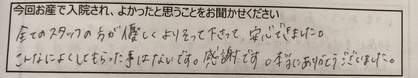 今回お産で入院され、よかったと思うことをお聞かせください
全てのスタッフの方が優しくよりそって下さって、安心できました。
こんなによくしてもらった事はないです。感謝です。本当にありがとうございました。